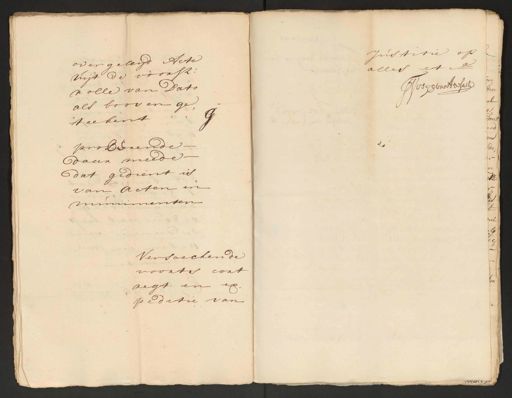 over gelegd Acte
uijt de voorsz:
rolle van Dato
als booven ge,
teekent
G
produceerende
daer meede
dat gedient is
van Acten en
munimenten
Versoeckende
voorts cort
regt en ex.
peditie van
Justitie op
alles et ca